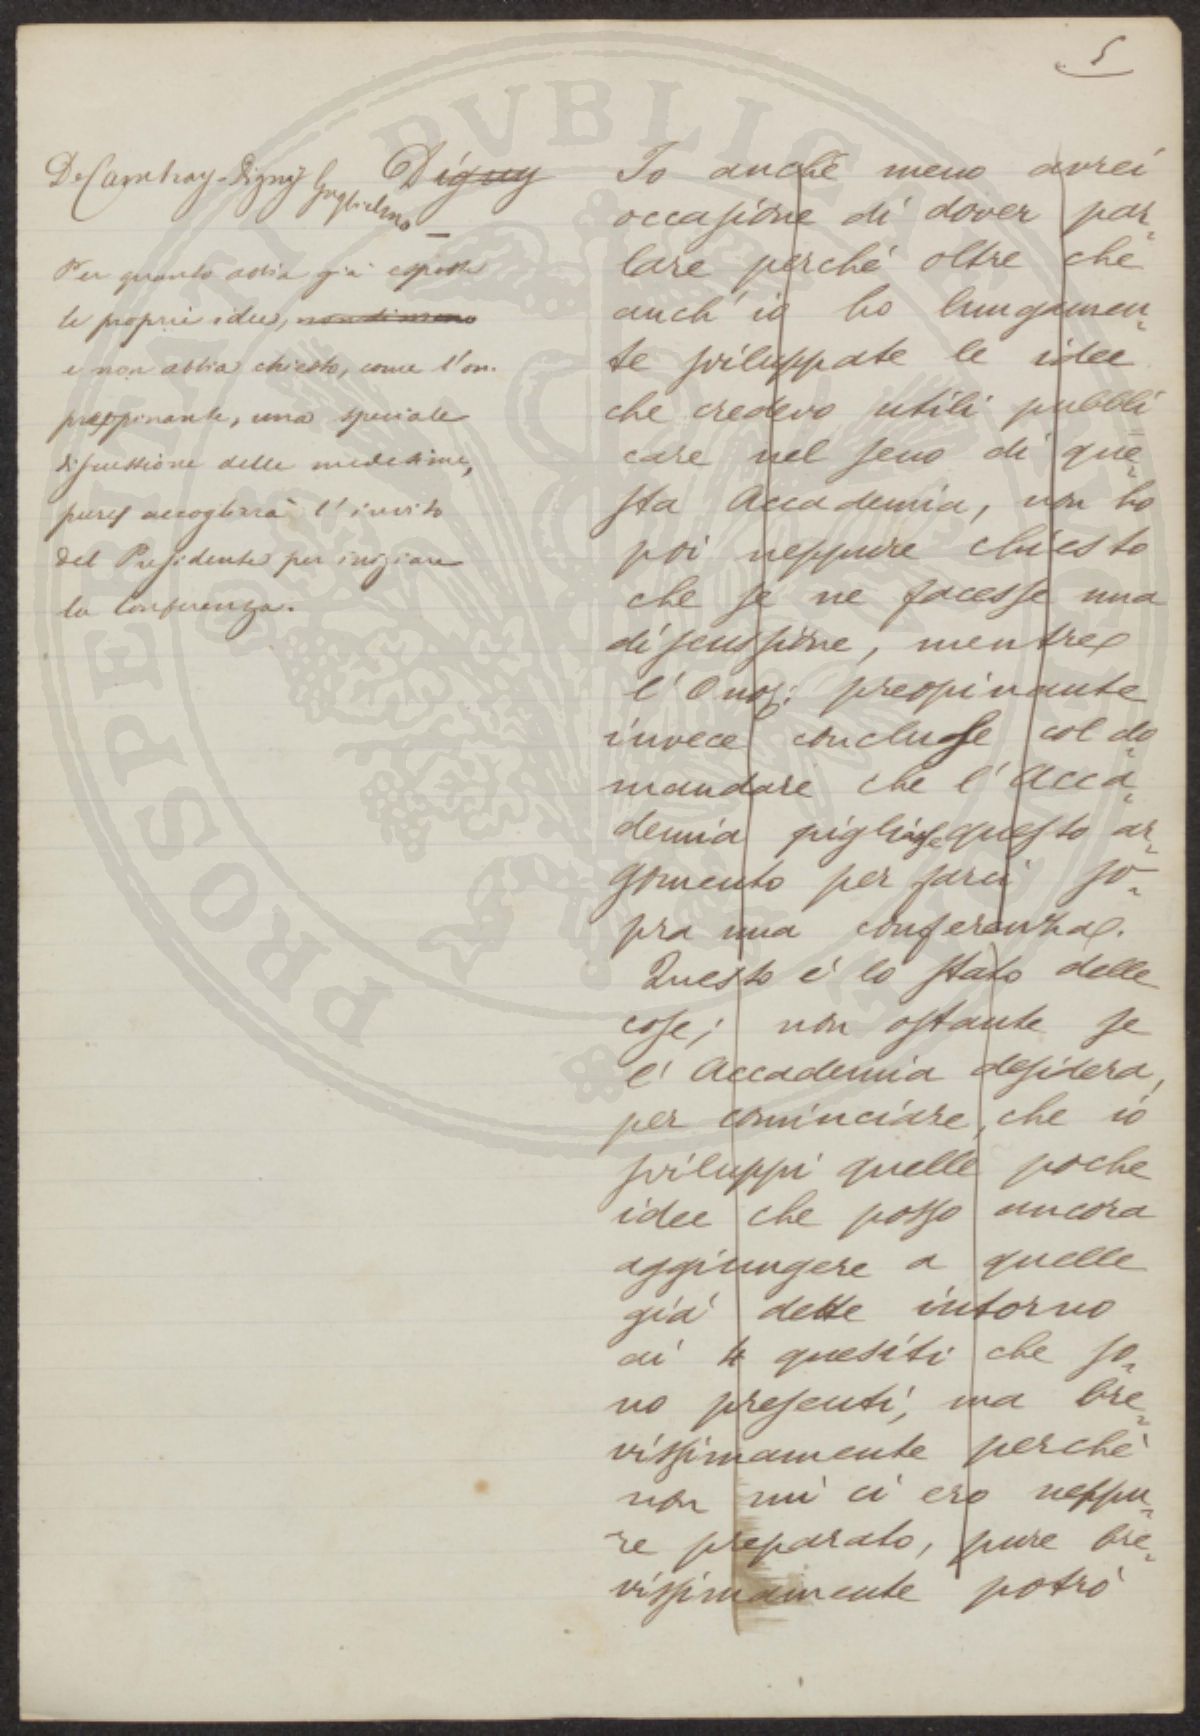 5
De Cambray-Digny Guglielmo
Digny
Per quanto abbia già esposte
le proprie idee, nondimeno
e non abbia chiesto, come l'on.
preopinante, una speciale
discussione delle medesime,
pure accoglierà l'invito
del Presidente per iniziare
la Conferenza.
Io anche meno avrei
occasione di dover par=
lare perché oltre che
anch'io ho lungamen=
te sviluppate le idee
che credevo utili pubbli
care nel seno di que=
sta Accademia, non ho
poi neppure chiesto
che se ne facesse una
discussione, mentre
l'Onor: preopinante
invece concluse col do=
mandare che l'Acca=
demia pigliasse questo ar=
gomento per farci so=
pra una conferenza.
Questo è lo stato delle
cose; non ostante se
l'Accademia desidera,
per cominciare, che io
sviluppi quelle poche
idee che posso ancora
aggiungere a quelle
già dette intorno
ai 4 quesiti che so=
no presenti, ma bre=
vissimamente perché
non mi ci ero neppu=
re preparato, pure bre=
vissimamente potrò
PROSPERITATI PVBLICAE